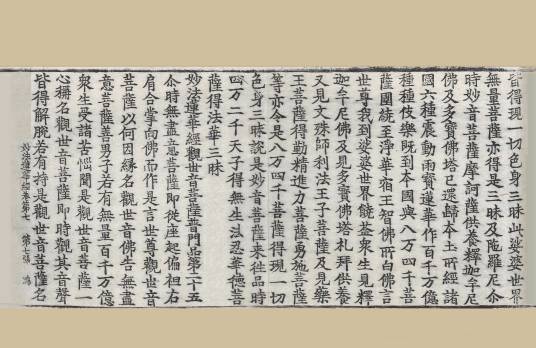 皆得現一切色身三昧此娑婆世界
無量菩薩亦得是三昧及陁羅尼尒
時妙音菩薩摩訶薩供養釋迦牟尼
佛及多寶佛塔已還歸本土所經諸
國六種震動雨寶蓮華作百千万億
種種伎樂既到本國與八万四千菩
薩圍繞至淨華宿王智佛所白佛言
世尊我到娑婆世界饒益衆生見釋
迦牟尼佛及見多寶佛塔礼拜供養
又見文殊師利法王子菩薩及見藥
王菩薩得勤精進力菩薩勇施菩薩
等亦令是八万四千菩薩得現一切
色身三昧說是妙音菩薩來往品時
四万二千天子得無生法忍華德菩
薩得法華三昧
妙法蓮華經觀世音菩薩普門品第二十五
尒時無盡意菩薩即從座起偏袒右
肩合掌向佛而作是言世尊觀世音
菩薩以何因緣名觀世音佛告無盡
意菩薩善男子若有無量百千万億
衆生受諸苦惱聞是觀世音菩薩一
心稱名觀世音菩薩即時觀其音聲
皆得解脫若有持是觀世音菩薩名
妙法蓮華經卷第